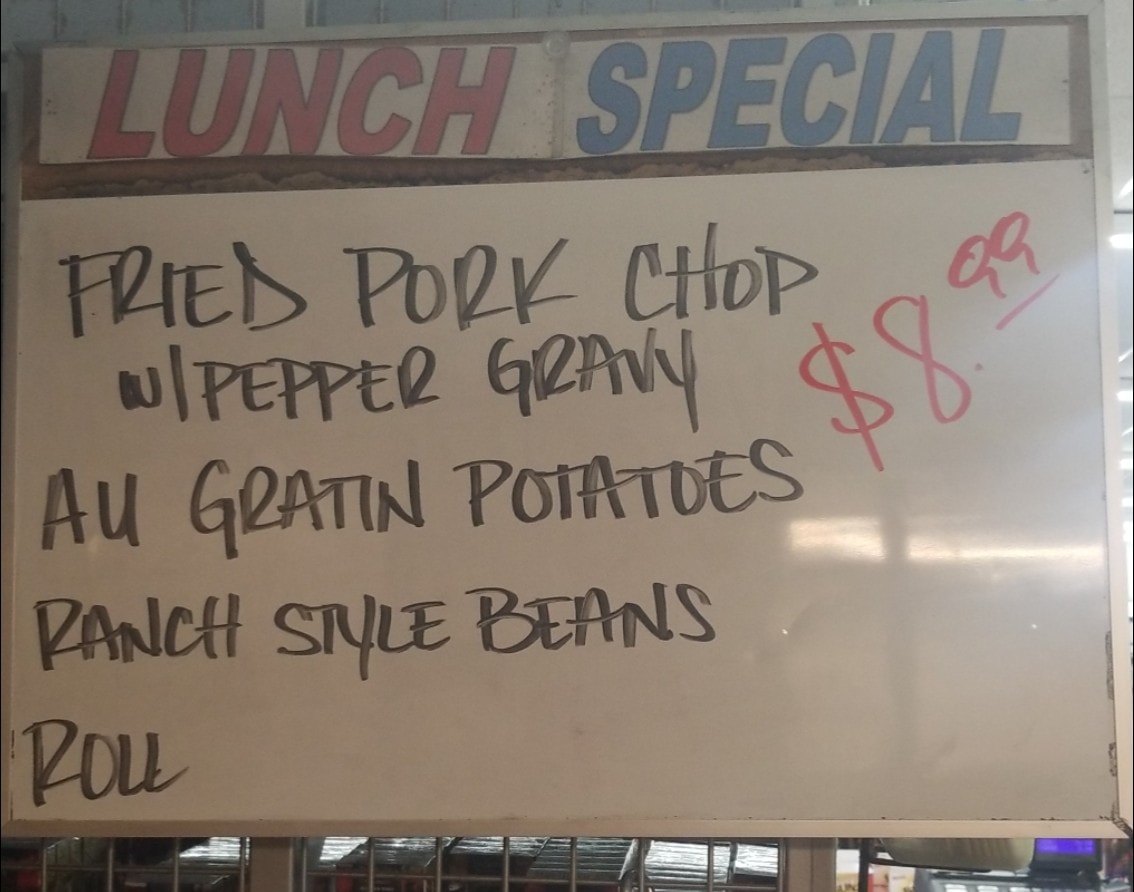 LUNCH SPECIAL
FRIED PORK CHOP
w/PEPPER GRAVY
$8.99
AU GRATIN POTATOES
RANCH STYLE BEANS
ROLL